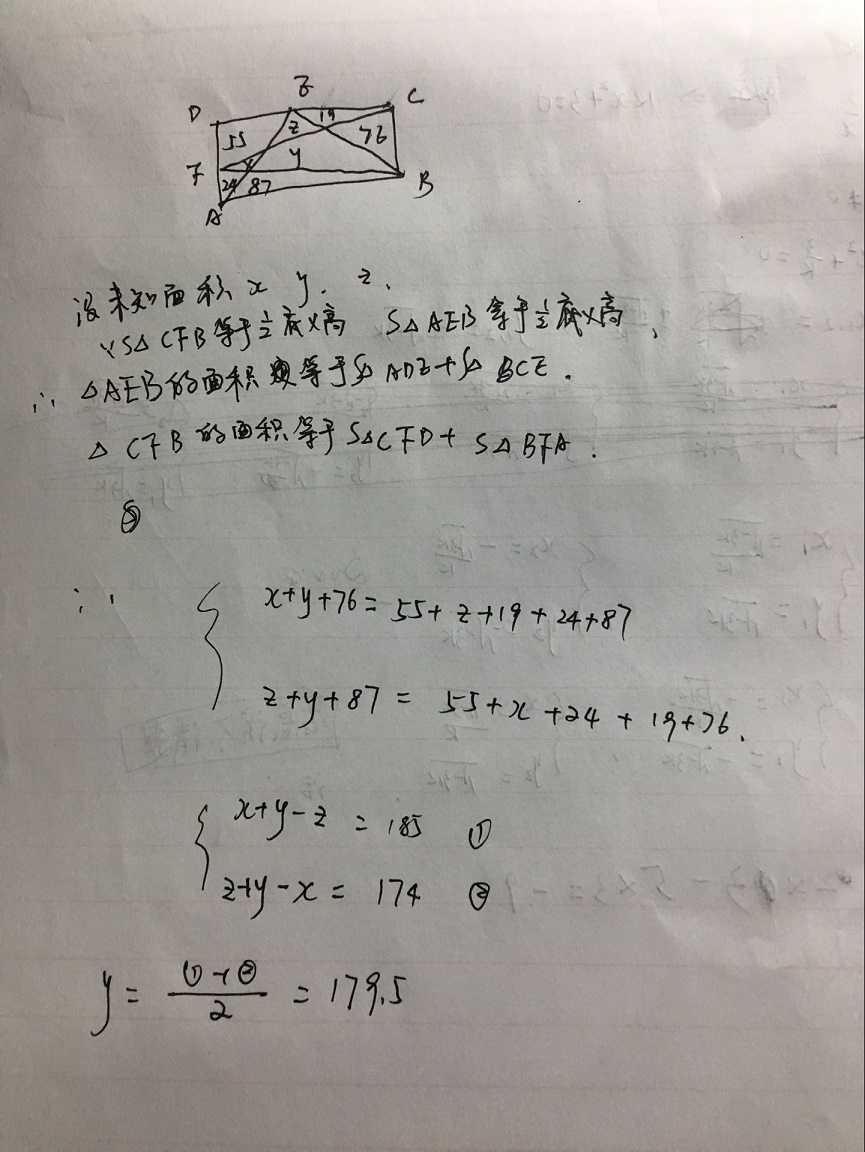 D E C
55 z 19 76
F x y
24 87 B
A
设未知面积 x y. z.
∵ S△ CFB 等于½底×高 S△ AEB 等于½底×高,
∴ △AEB的面积 等于S△ ADE+S△ BCE.
△ CFB 的面积等于 S△CFD+ S△BFA.
∴
x+y+76= 55+ z+19+24+87
z+y+87 = 55+x+24+19+76.
x+y-z = 185 ①
z+y-x = 174 ②
y= ①+②/2 = 179.5